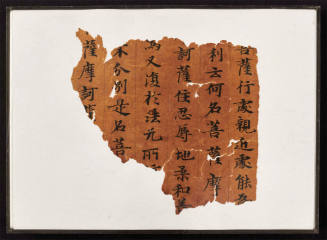 菩薩行處親近處能
利云何名菩薩摩
訶薩住忍辱地柔和
又復於法无所
不分別是名菩
薩摩訶